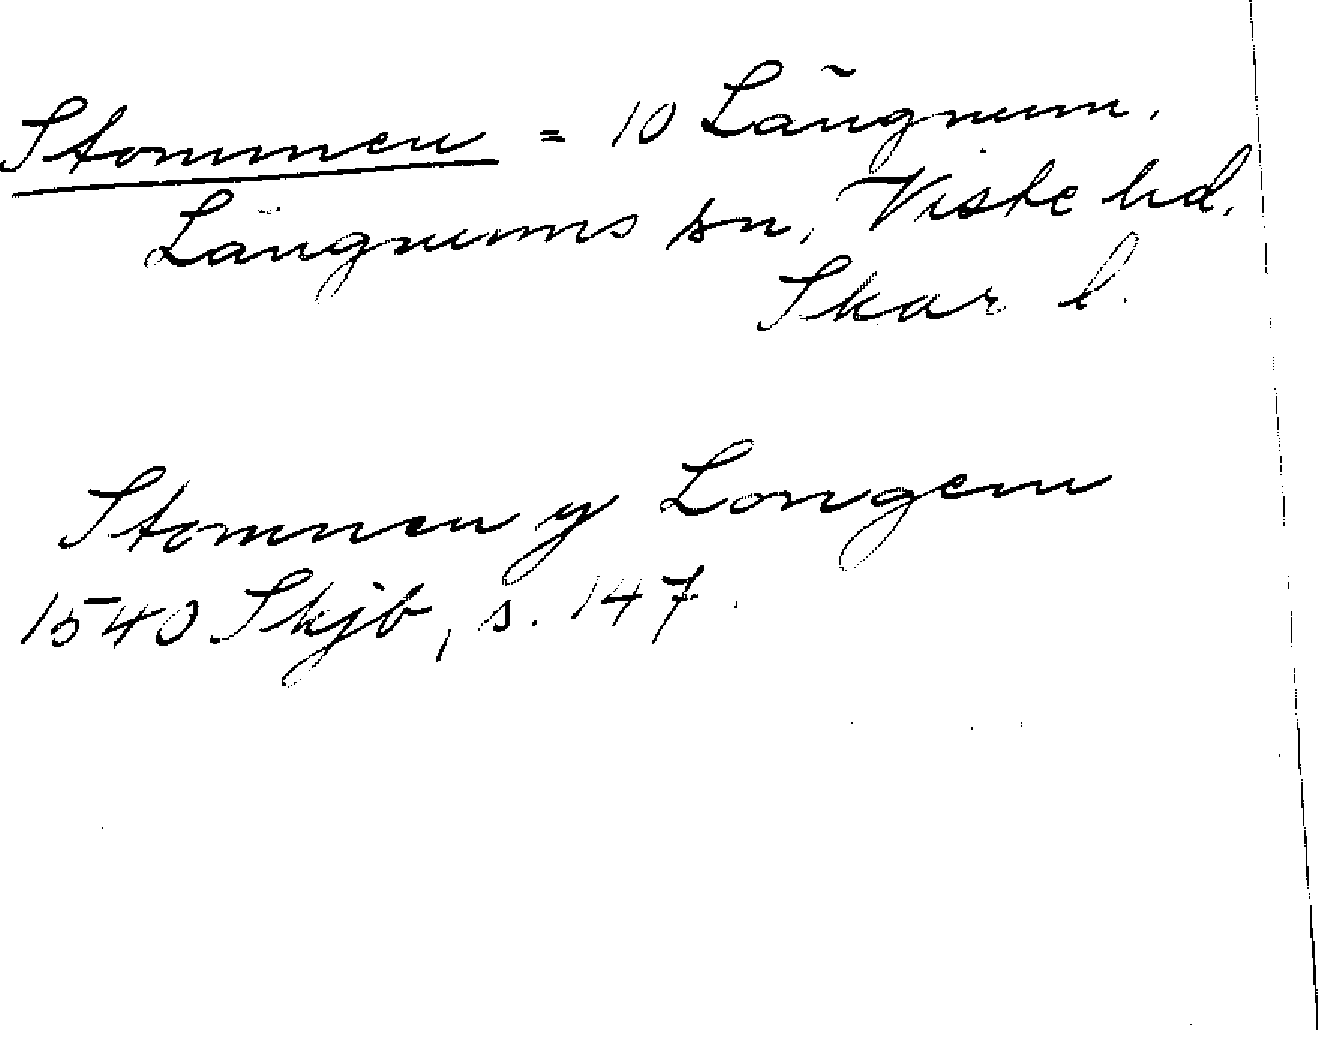 Stommen = 10 Längnum.
Längnums sn, Viste hd.
Skar l.
Stommen y Longem
1540 Skjb, s. 147.